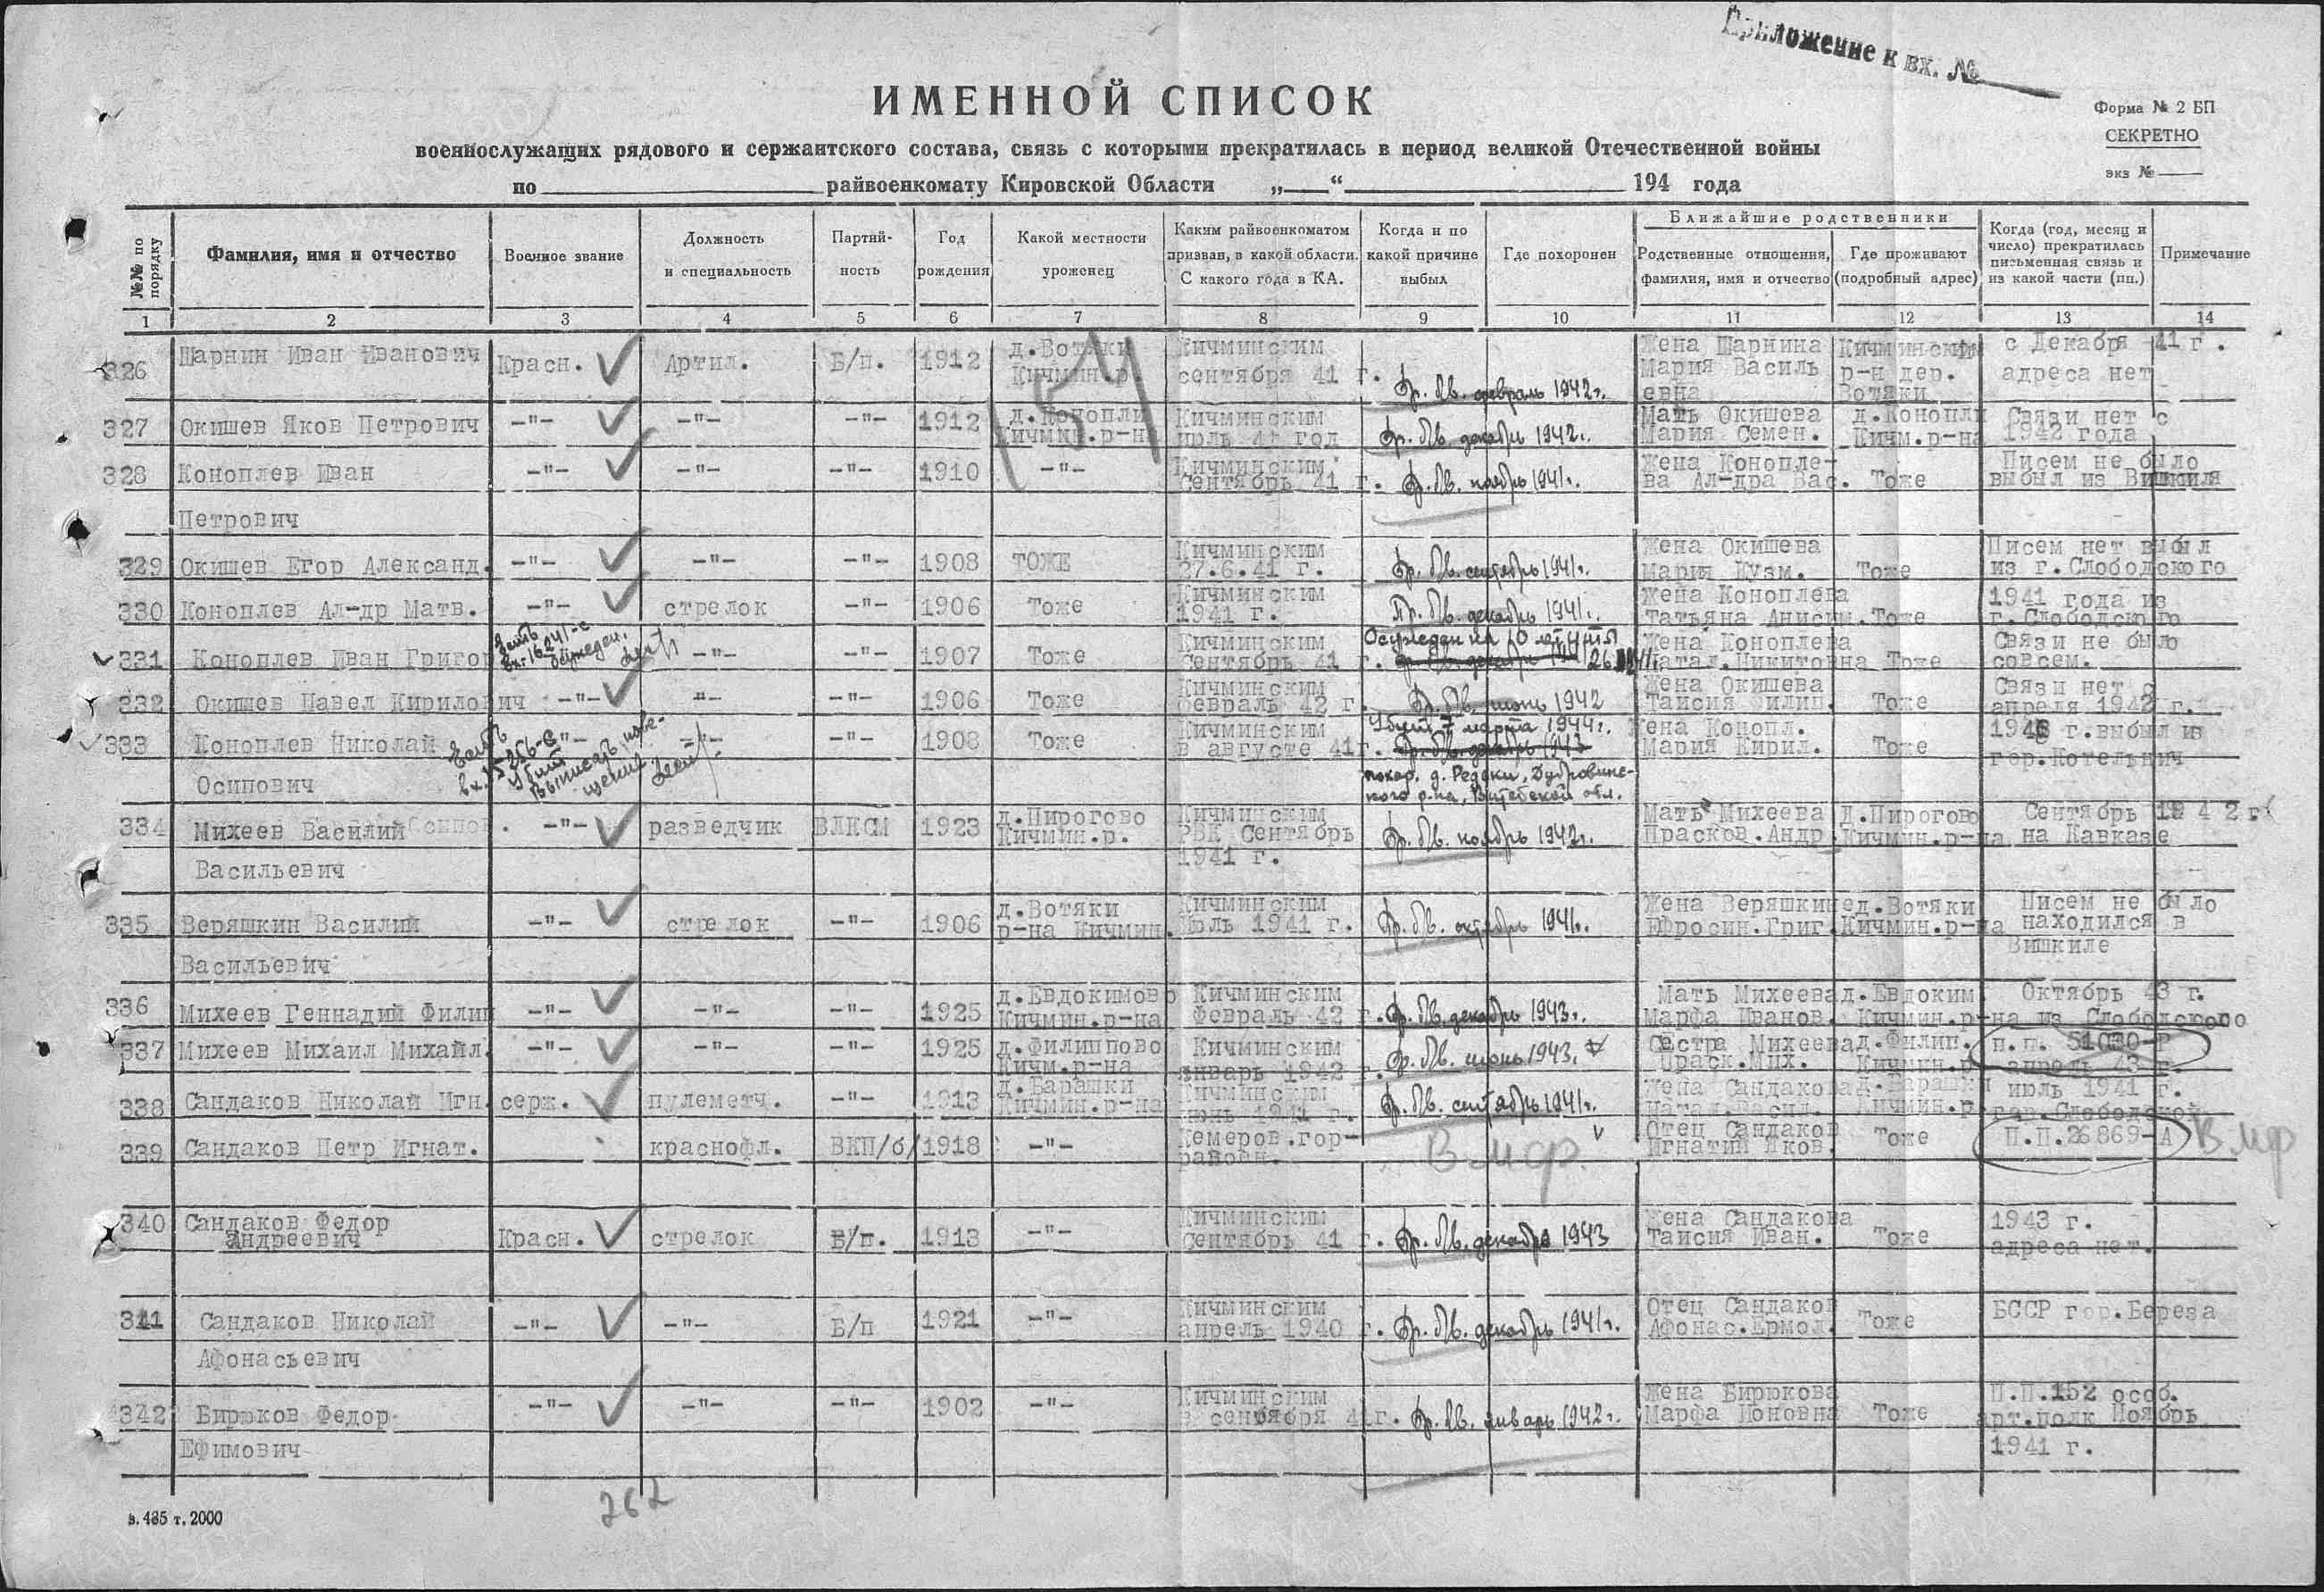 Приложение к вх. №
ИМЕННОЙ СПИСОК
Форма № 2 БП
СЕКРЕТНО
экз №
военнослужащих рядового и сержантского состава, связь с которыми прекратилась в период великой Отечественной войны
по райвоенкомату Кировской Области „ “ 194 года
№№ по порядку
Фамилия, имя и отчество
Военное звание
Должность и специальность
Партий-ность
Год рождения
Какой местности уроженец
Каким райвоенкоматом призван, в какой области. С какого года в КА.
Когда и по какой причине выбыл
Где похоронен
Ближайшие родственники
Родственные отношения, фамилия, имя и отчество
Где проживают (подробный адрес)
Когда (год, месяц и число) прекратилась письменная связь и из какой части (пп.)
Примечание
1 2 3 4 5 6 7 8 9 10 11 12 13 14
326 Шарнин Иван Иванович Красн. Артил. Б/п. 1912 д.Вотяки Кичмин.р. Кичминским сентября 41 г. пр. бв. февраль 1942г. Жена Шарнина Мария Василь евна Кичминским р-н дер. Вотяки с Декабря 41 г. адреса нет
327 Окишев Яков Петрович -"- -"- -"- 1912 д.Конопли Кичмин.р-н Кичминским июль 41 год пр. бв. декабрь 1942г. Мать Окишева Мария Семен. д.Конопли Кичм.р-на Связи нет с 1942 года
328 Коноплев Иван Петрович -"- -"- -"- 1910 -"- Кичминским сентябрь 41 г. пр. бв. ноябрь 1941г. Жена Конопле-ва Ал-дра Вас. Тоже Писем не было выбыл из Вишкиля
329 Окишев Егор Александ. -"- -"- -"- 1908 ТОЖЕ Кичминским 27.6.41 г. пр. бв. сентябрь 1941г. Жена Окишева Мария Кузм. Тоже Писем нет выбыл из г.Слободского
330 Коноплев Ал-др Матв. -"- стрелок -"- 1906 Тоже Кичминским 1941 г. Пр. бв. декабрь 1941г. Жена Коноплева Татьяна Анисим. Тоже 1941 года из г.Слободского
331 Коноплев Иван Григор Есть вх. 16241-с Осужден. -"- -"- 1907 Тоже Кичминским Сентябрь 41 г. Осужден на 10 лет ИТЛ Жена Коноплева Натал.Никитовна Тоже Связи не было совсем.
332 Окишев Павел Кирилович -"- -"- -"- 1906 Тоже Кичминским февраль 42 г. Пр. бв. июнь 1942 Жена Окишева Таисия Филип. Тоже Связи нет с апреля 1942 г.
333 Коноплев Николай Осипович Есть убит Выписать изве-щение -"- -"- -"- 1908 Тоже Кичминским в августе 41г. Убит 7 марта 1944г. пр. бв. декабрь 1943 похор. д. Редьки, Дубровинс-кого р-на, Витебской обл. Жена Конопл. Мария Кирил. Тоже г.выбыл из гор.Котельнич
334 Михеев Василий Васильевич -"- разведчик ВЛКСМ 1923 д.Пирогово Кичмин.р. Кичминским РВК Сентябрь 1941 г. пр. бв. ноябрь 1942г. Мать Михеева Прасков.Андр. Д.Пирогово Кичмин.р-на Сентябрь 1942г. на Кавказе
335 Веряшкин Василий Васильевич -"- стрелок -"- 1906 д.Вотяки р-на Кичмин. Кичминским Июль 1941 г. пр. бв. октябрь 1941г. Жена Веряшкине Ефросин.Григ. д.Вотяки Кичмин.р-на Писем не было находился в Вишкиле
336 Михеев Геннадий Филип -"- -"- -"- 1925 д.Евдокимово Кичмин.р-на Кичминским февраль 42 г. пр. бв. декабрь 1943г. Мать Михеева Марфа Иванов. д.Евдоким. Кичмин.р-на Октябрь 43 г. из Слободского
337 Михеев Михаил Михайл. -"- -"- -"- 1925 д.Филиппово Кичм.р-на Кичминским январь 1942 г. пр. бв. июнь 1943г. Сестра Михеева Праск.Мих. д.Филип. Кичмин.р п.п. 51030-Р апрель 43 г.
338 Сандаков Николай Игн. серж. пулеметч. -"- 1913 д.Барашки Кичмин.р-на Кичминским июнь 1941 г. пр. бв. сентябрь 1941г. Жена Сандакова Натал.Васил. д.Барашки Кичмин.р. июль 1941 г. гор.Слободской
339 Сандаков Петр Игнат. краснофл. ВКП/б/ 1918 -"- Кемеров.гор-районн. Вмф. Отец Сандаков Игнатий Яков. Тоже П.П.26869-А Вмф
340 Сандаков Федор Андреевич Красн. стрелок Б/п. 1913 -"- Кичминским Сентябрь 41 г. пр. бв. декабре 1943 Жена Сандакова Таисия Иван. Тоже 1943 г. адреса нет.
341 Сандаков Николай Афонасьевич -"- -"- Б/п 1921 -"- Кичминским апрель 1940 г. пр. бв. декабрь 1941г. Отец Сандаков Афонас.Ермол. Тоже БССР гор.Береза
342 Бирюков Федор Ефимович -"- -"- -"- 1902 -"- Кичминским в сентября 41г. пр. бв. январь 1942г. Жена Бирюкова Марфа Ионовна Тоже П.П.152 особ. арт.полк Ноябрь 1941 г.
262
з. 435 т. 2000